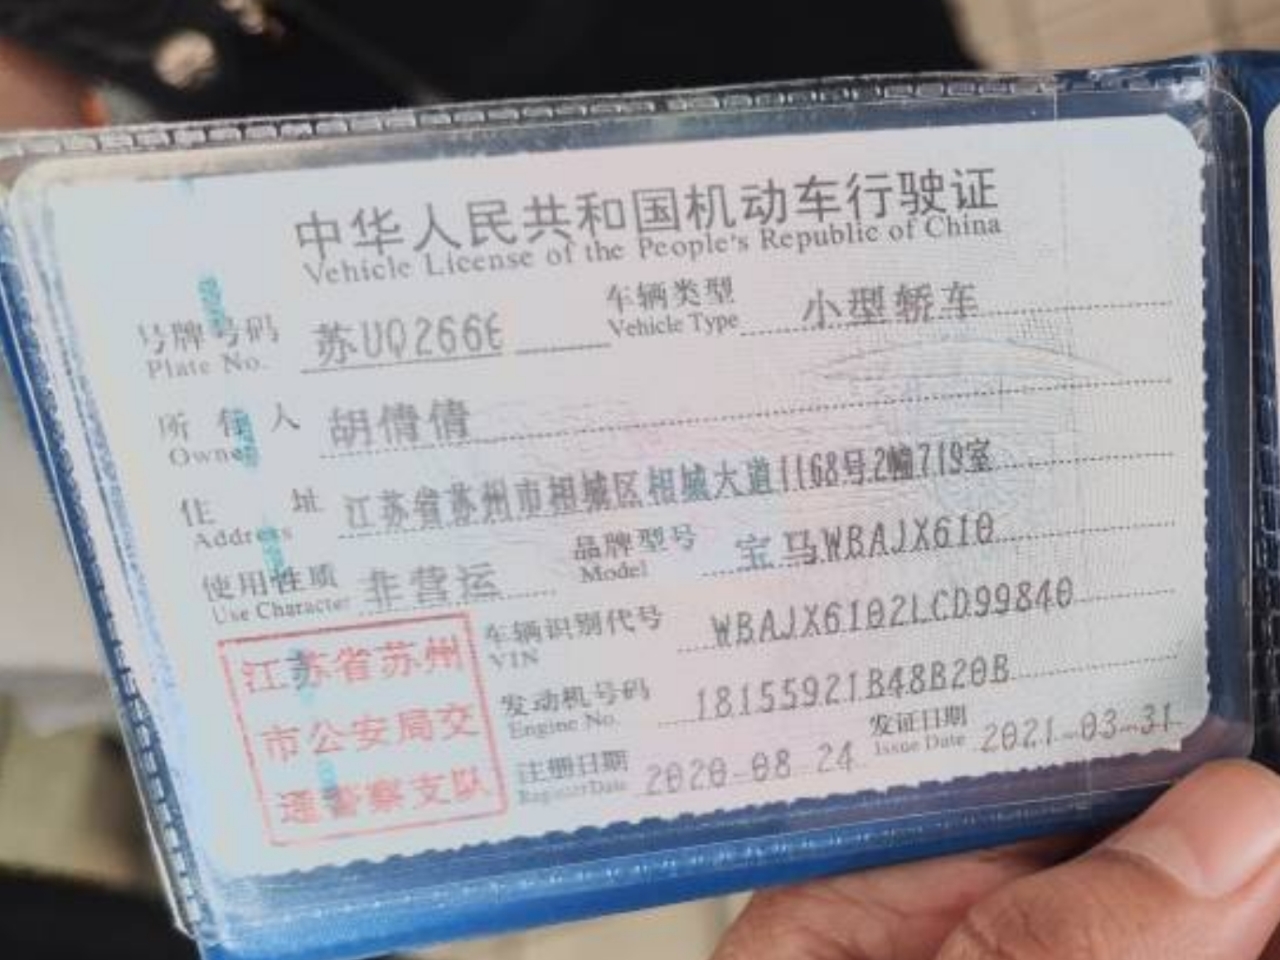 中华人民共和国机动车行驶证
Vehicle License of the People's Republic of China
号牌号码 苏UQ266E 车辆类型 小型轿车
Plate No. Vehicle Type
所有人 胡倩倩
Owner
住址 江苏省苏州市相城区相城大道1168号2幢719室
Address
使用性质 非营运 品牌型号 宝马WBAJX610
Use Character Model
车辆识别代号 WBAJX6102LCD99840
VIN
发动机号码 18155921B48B20B
Engine No.
注册日期 2020-08-24 发证日期 2021-03-31
Register Date Issue Date
江苏省苏州
市公安局交
通警察支队